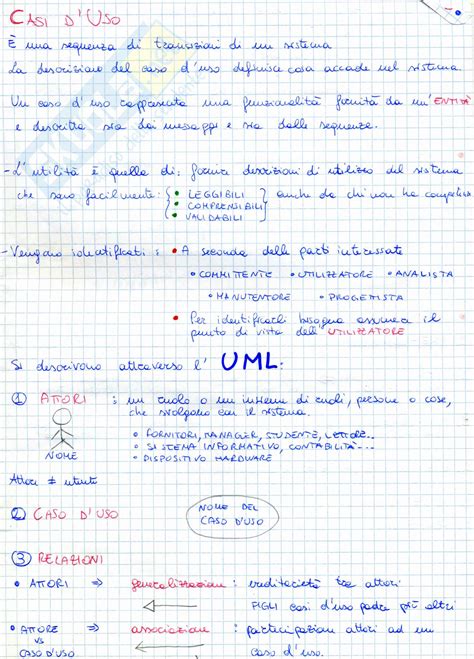 CASI D'USO
È una sequenza di transizioni di un sistema
La descrizione del caso d'uso definisce cosa accade nel sistema.
Un caso d'uso rappresenta una funzionalità fornita da un'ENTITÀ
e descritta sia dai messaggi e sia dalle sequenze.
- L'utilità è quella di: fornire descrizioni di utilizzo del sistema
che siano facilmente: { • LEGGIBILI } anche da chi non ha
• COMPRENSIBILI
• VALIDABILI
- Vengono identificati: • A seconda delle parti interessate
• COMMITTENTE • UTILIZZATORE • ANALISTA
• MANUTENTORE • PROGETTISTA
• Per identificarli bisogna assumere il
punto di vista dell'UTILIZZATORE
Si descrivono attraverso l' UML:
① ATTORI : un ruolo o un insieme di ruoli, persone o cose,
che svolgono con il sistema.
• FORNITORI, MANAGER, STUDENTE, LETTORE...
• SISTEMA INFORMATIVO, CONTABILITÀ...
NOME • DISPOSITIVO HARDWARE
Attori ≠ utente
② CASO D'USO NOME DEL
CASO D'USO
③ RELAZIONI
• ATTORI ⇒ generalizzazione : ereditarietà tra attori
FIGLI casi d'uso padre più altri
• ATTORE ⇒ associazione : partecipazione attori ad un
VS
CASO D'USO caso d'uso.